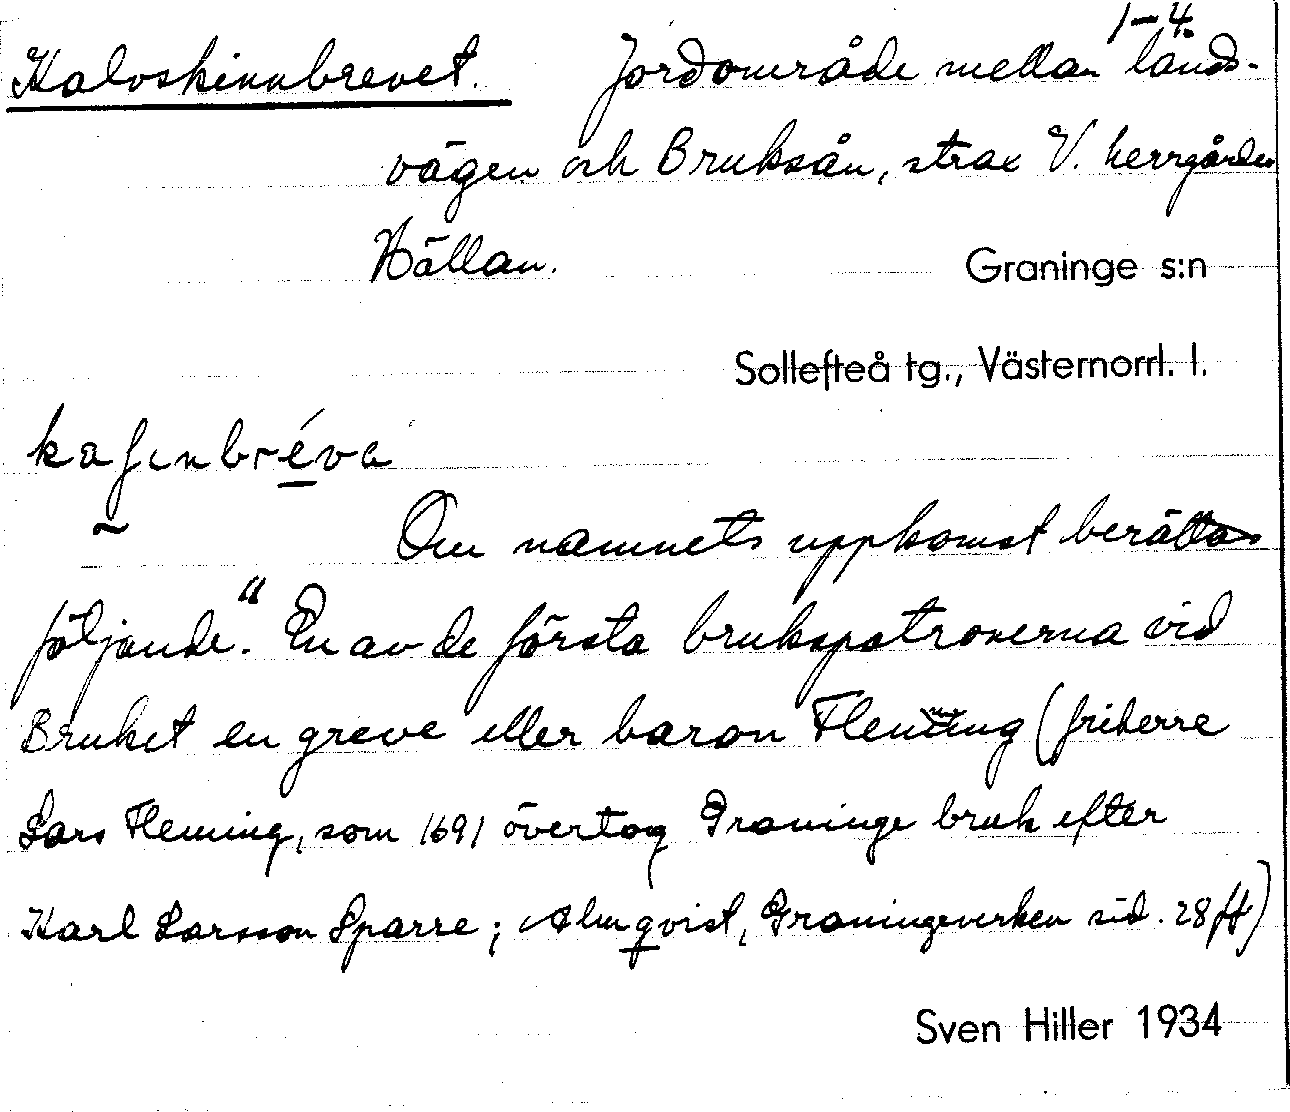 1-4.
Kalvskinnbrevet. Jordområde mellan lands-
vägen och Bruksån, strax V. herrgården
Hällan.
Graninge s:n
Sollefteå tg., Västernorrl. l.
kaʃinbréva
Om namnets uppkomst berättas
följande. "En av de första brukspatronerna vid
Bruket en greve eller baron Fleming (friherre
Lars Fleming, som 1691 övertog Graninge bruk efter
Karl Larsson Sparre; Almqvist, Graningeverken sid. 28 ff)
Sven Hiller 1934